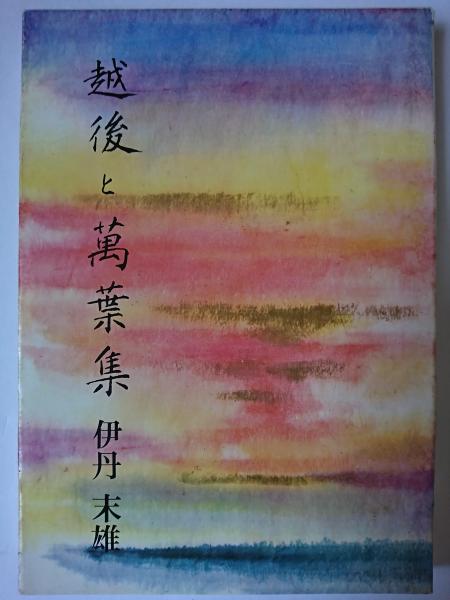 越後と萬葉集
伊丹末雄